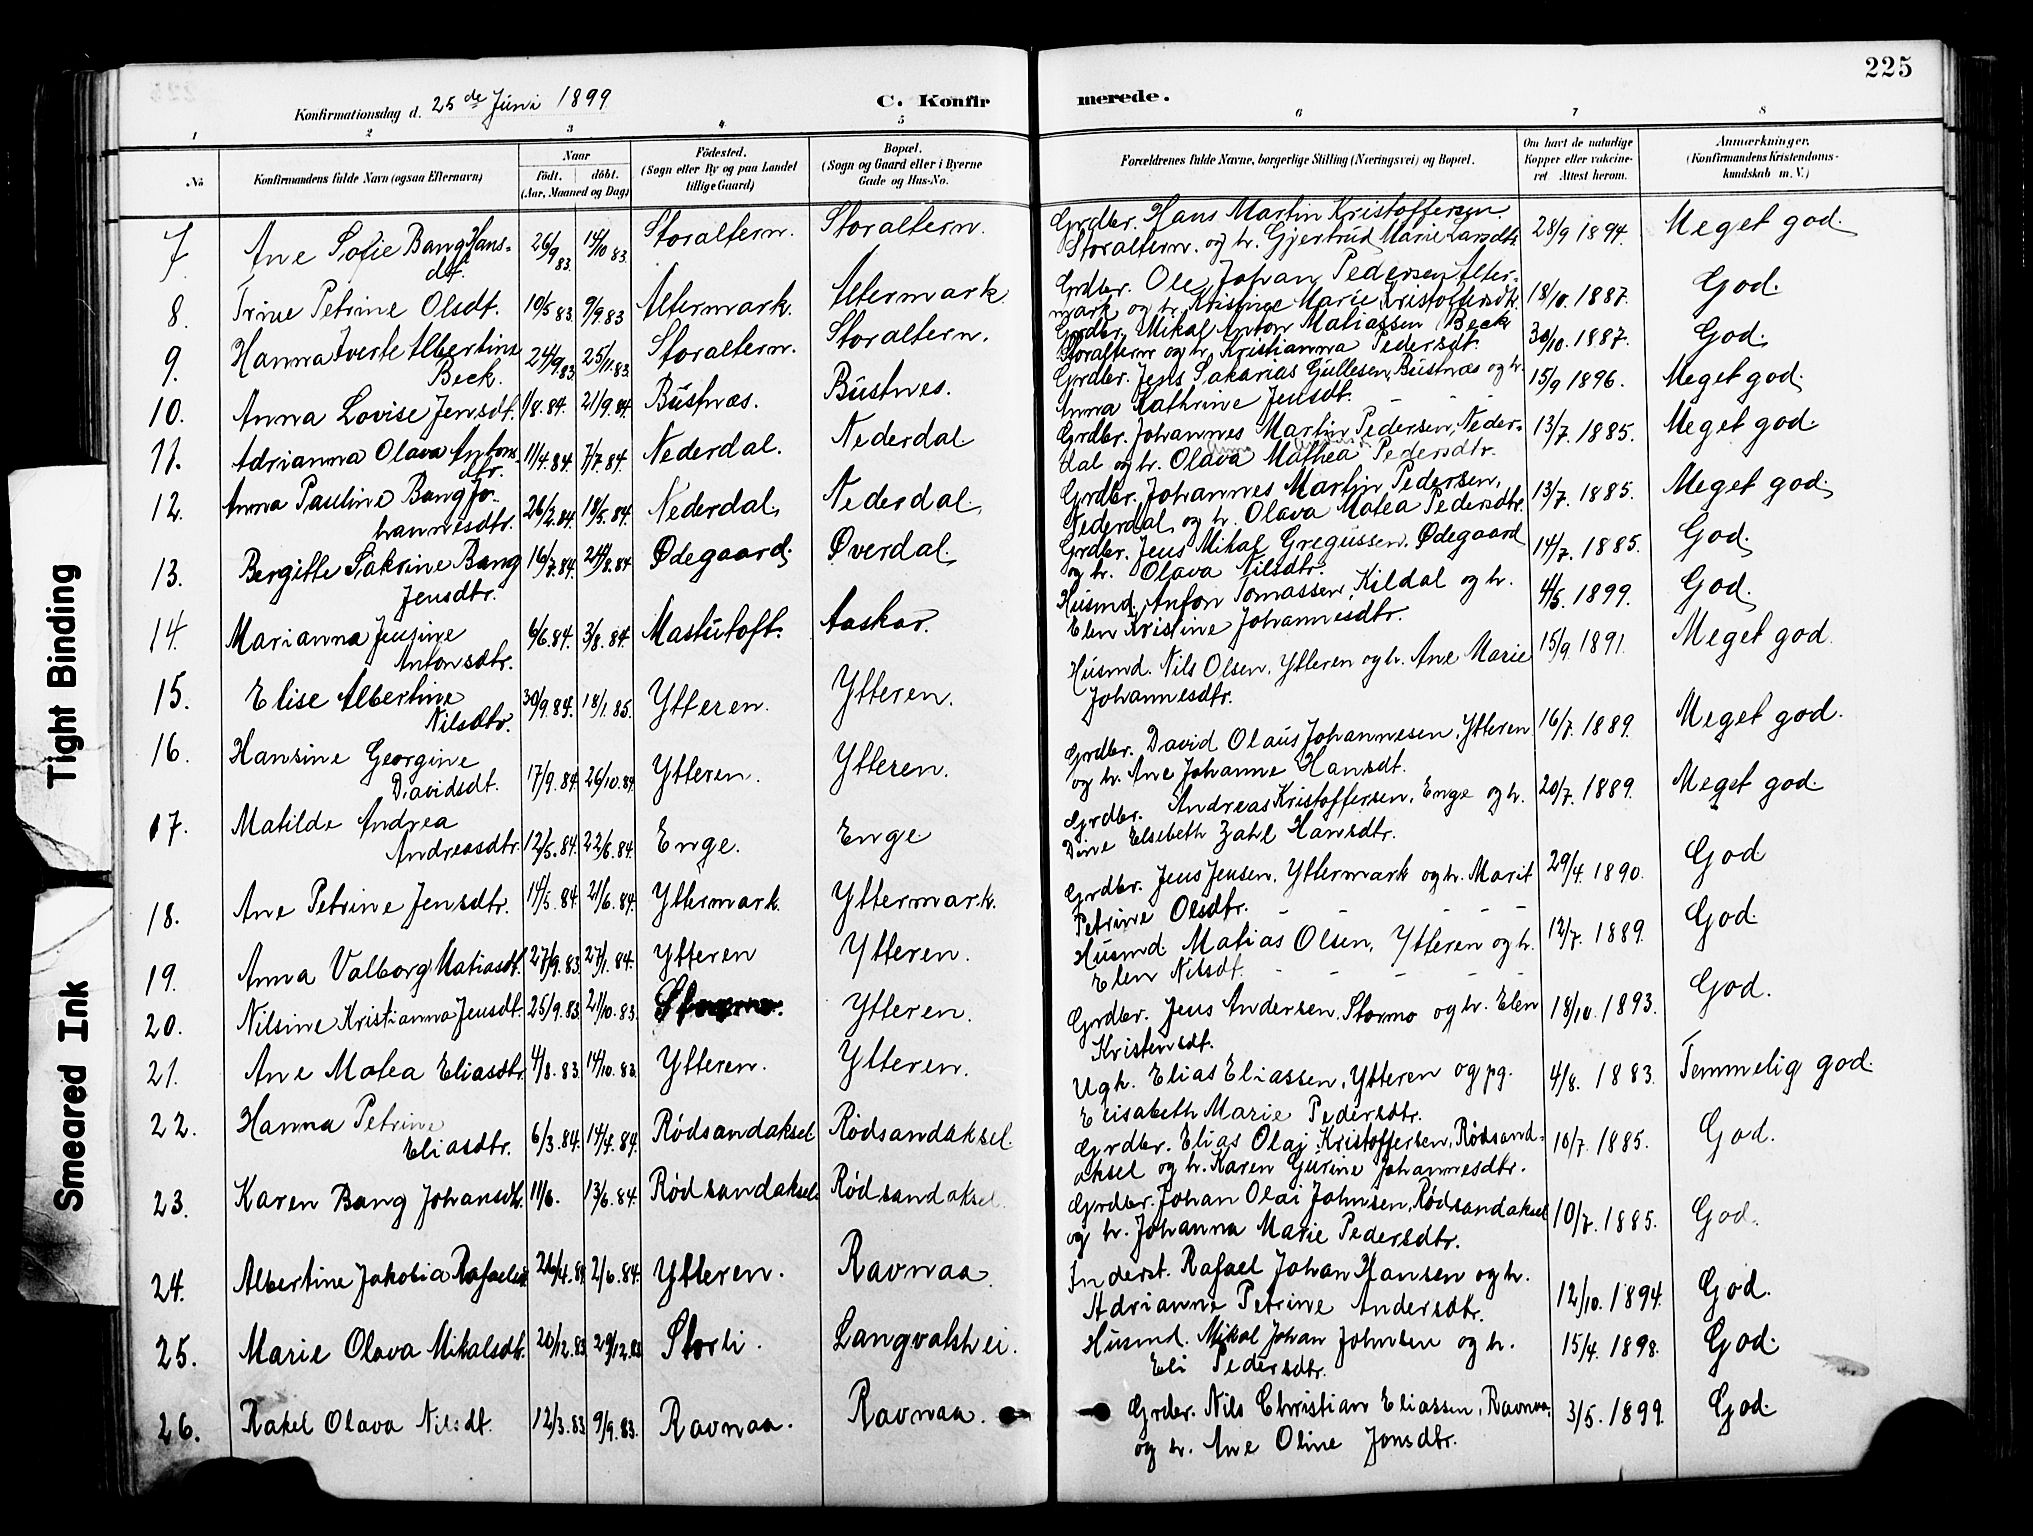 225
Konfirmationsdag d. 25de Juni 1899
C. Konfirmerede.
1 2 3 4 5 6 7 8
No
Konfirmandens fulde Navn (ogsaa Efternavn)
Naar
födt. döbt.
(Aar, Maaned og Dag)
Födested.
(Sogn eller By og paa Landet
tillige Gaard)
Bopæl.
(Sogn og Gaard eller i Byerne
Gade og Hus-No.
Forældrenes fulde Navne, borgerlige Stilling (Næringsvei) og Bopæl.
Om havt de naturlige
Kopper eller vakcine-
ret Attest herom.
Anmærkninger.
(Konfirmandens Kristendoms-
kundskab m. V.)
7 Ane Sofie Bang Hans-
dt. 26/9 83 14/10 83. Storaltern. Storaltern.
Grdbr. Hans Martin Kristoffersen
Storaltern. og h. Gjertrud Marie Larsdtr. 28/9 1894. Meget god.
8. Trine Petrine Olsdt. 10/5 83. 9/9.83 Altermark. Altermark
Grdbr. Ole Johan Pedersen Alter-
mark og h. Kristine Marie Kristoffersdtr. 18/10. 1887. God.
9. Hanna Iverte Albertine
Beck. 24/9.83. 25/11.83. Storaltern. Storaltern.
Grdbr. Mikal Anton Matiassen Beck
Storaltern og h. Kristianna Pedersdt. 30/10. 1887. God.
10. Anna Lovise Jensdt. 1/8.84. 21/9.84. Bustnæs. Bustnes.
Grdbr. Jens Sakarias Gullesen, Bustnæs og h.
Anna Kathrine Jensdt. - - - 15/9 1896. Meget god.
11. Adrianna Olava Antons-
dtr. 11/4.84. 7/7.84. Nederdal. Nederdal
Grdbr. Johannes Martin Pedersen, Neder-
dal og h. Olava Mathea Pedersdtr. 13/7. 1885. Meget god.
12. Anna Pauline Bang Jo-
hannesdtr. 26/2.84. 18/5.84. Nederdal. Nederdal
Grdbr. Johannes Martin Pedersen,
Nederdal og h. Olava Matea Pedersdtr. 13/7. 1885. Meget god.
13. Bergitte Sakrine Bang
Jensdtr. 16/7.84. 24/8.84 Ødegaard. Øverdal.
Grdbr. Jens Mikal Gregussen. Ødegaard
og h. Olava Nilsdtr. 14/7. 1885. God.
14. Marianna Jensine
Antonsdtr. 6/6.84. 3/8.84. Mastutoft. Aaskar.
Husmd. Anton Tomassen, Kildal og h.
Elen Kristine Johannesdtr. 4/5. 1899. God.
15. Elise Albertine
Nilsdtr. 30/9.84. 18/1.85. Ytteren. Ytteren.
Husmd. Nils Olsen. Ytteren og h. Ane Marie
Johannesdtr. 15/9 1891. Meget god.
16. Hansine Georgine
Davidsdt. 17/9.84. 26/10.84. Ytteren. Ytteren.
Grdbr. David Olaus Johannesen, Ytteren
og h. Ane Johanne Hansdt. 16/7. 1889. Meget god.
17. Matilde Andrea
Andreasdtr. 12/5.84. 22/6.84. Enge. Enge
Grdbr. Andreas Kristoffersen, Enge og h.
Dine Elsebeth Zahl Hansdtr. 20/7. 1889. Meget god.
18. Ane Petrine Jensdtr. 14/5.84. 21/6.84. Yttermark. Yttermark.
Grdbr. Jens Jensen, Yttermark og h. Marit
Petrine Olsdtr. - - - - 29/4. 1890. God
19. Anna Valborg Matiasdt. 27/9.83. 27/1.84. Ytteren Ytteren.
Husmd. Matias Olsen, Ytteren og h.
Elen Nilsdt. - - - - 12/7. 1889. God.
20. Nilsine Kristianna Jensdt. 25/9.83. 21/10.83. Ytteren.
Grdbr. Jens Andersen, Stormo og h. Elen
Kristensdt. 18/10. 1893. God.
21. Ane Matea Eliasdtr. 4/8.83. 14/10.83. Ytteren. Ytteren.
Ugk. Elias Eliassen, Ytteren og pg.
Elisabeth Marie Pedersdtr. 4/8. 1883. Temmelig god.
22. Hanna Petrine
Eliasdtr. 6/3.84. 14/4.84. Rødsandaksel Rødsandaksel.
Grdbr. Elias Olaj Kristoffersen, Rødsand-
aksel og h. Karen Gurine Johannesdtr. 10/7. 1885. God.
23. Karen Bang Johansdtr. 11/6. 13/6.84. Rødsandaksel. Rødsandaksel.
Grdbr. Johan Olai Johnsen, Rødsandaksel
og h. Johanna Marie Pedersdtr. 10/7. 1885. God.
24. Albertine Jakobia 26/4.84 2/6.84. Ytteren. Ravnaa.
Inderst. Rafael Johan Hansen og h.
Adrianne Petrine Andersdtr. 12/10. 1894. God.
25. Marie Olava Mikalsdtr. 20/12.83 29/12.83 Storli. Langvatshei.
Husmd. Mikal Johan Johnsen og h.
Eli Pedersdtr. 15/4. 1898. God.
26. Rakel Olava Nilsdt. 12/3.83 9/9.83. Ravnaa. Ravnaa.
Grdbr. Nils Christian Eliassen, Ravnaa,
og h. Ane Oline Jonsdtr. 3/5. 1899. God.
Tight Binding
Smeared Ink